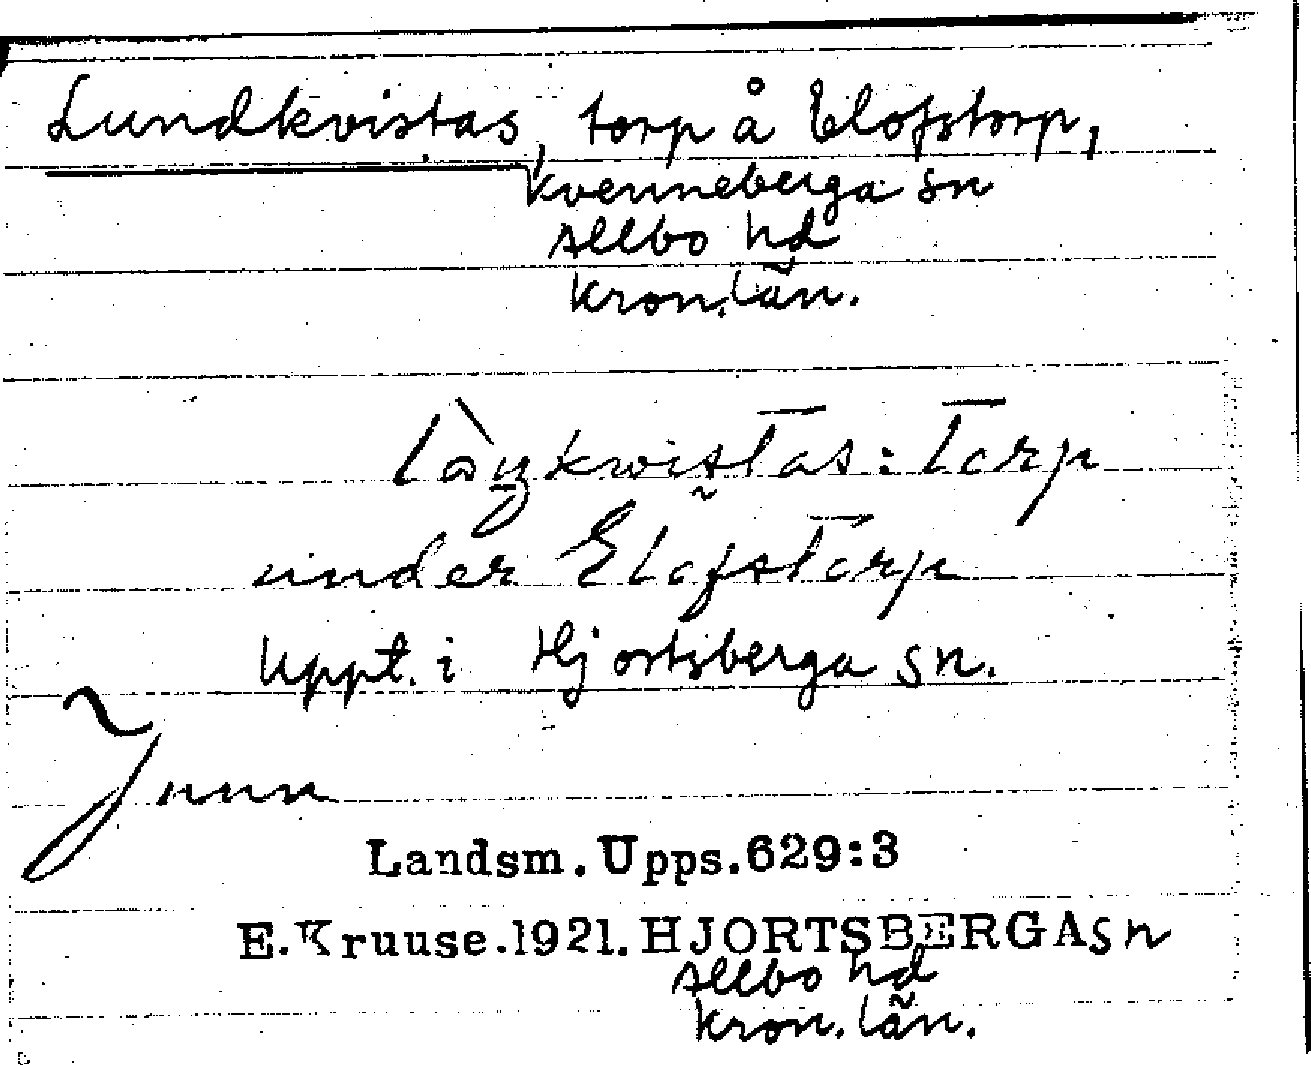 Lundkvistas, torp å Elofstorp,
Kvenneberga sn
Allbo hd
Kron. län.
Torp
under Elofstorp
Uppt. i Hjortsberga sn.
Landsm. Upps. 629:3
E. Kruuse. 1921. HJORTSBERGA sn
Allbo hd
Kron. län.